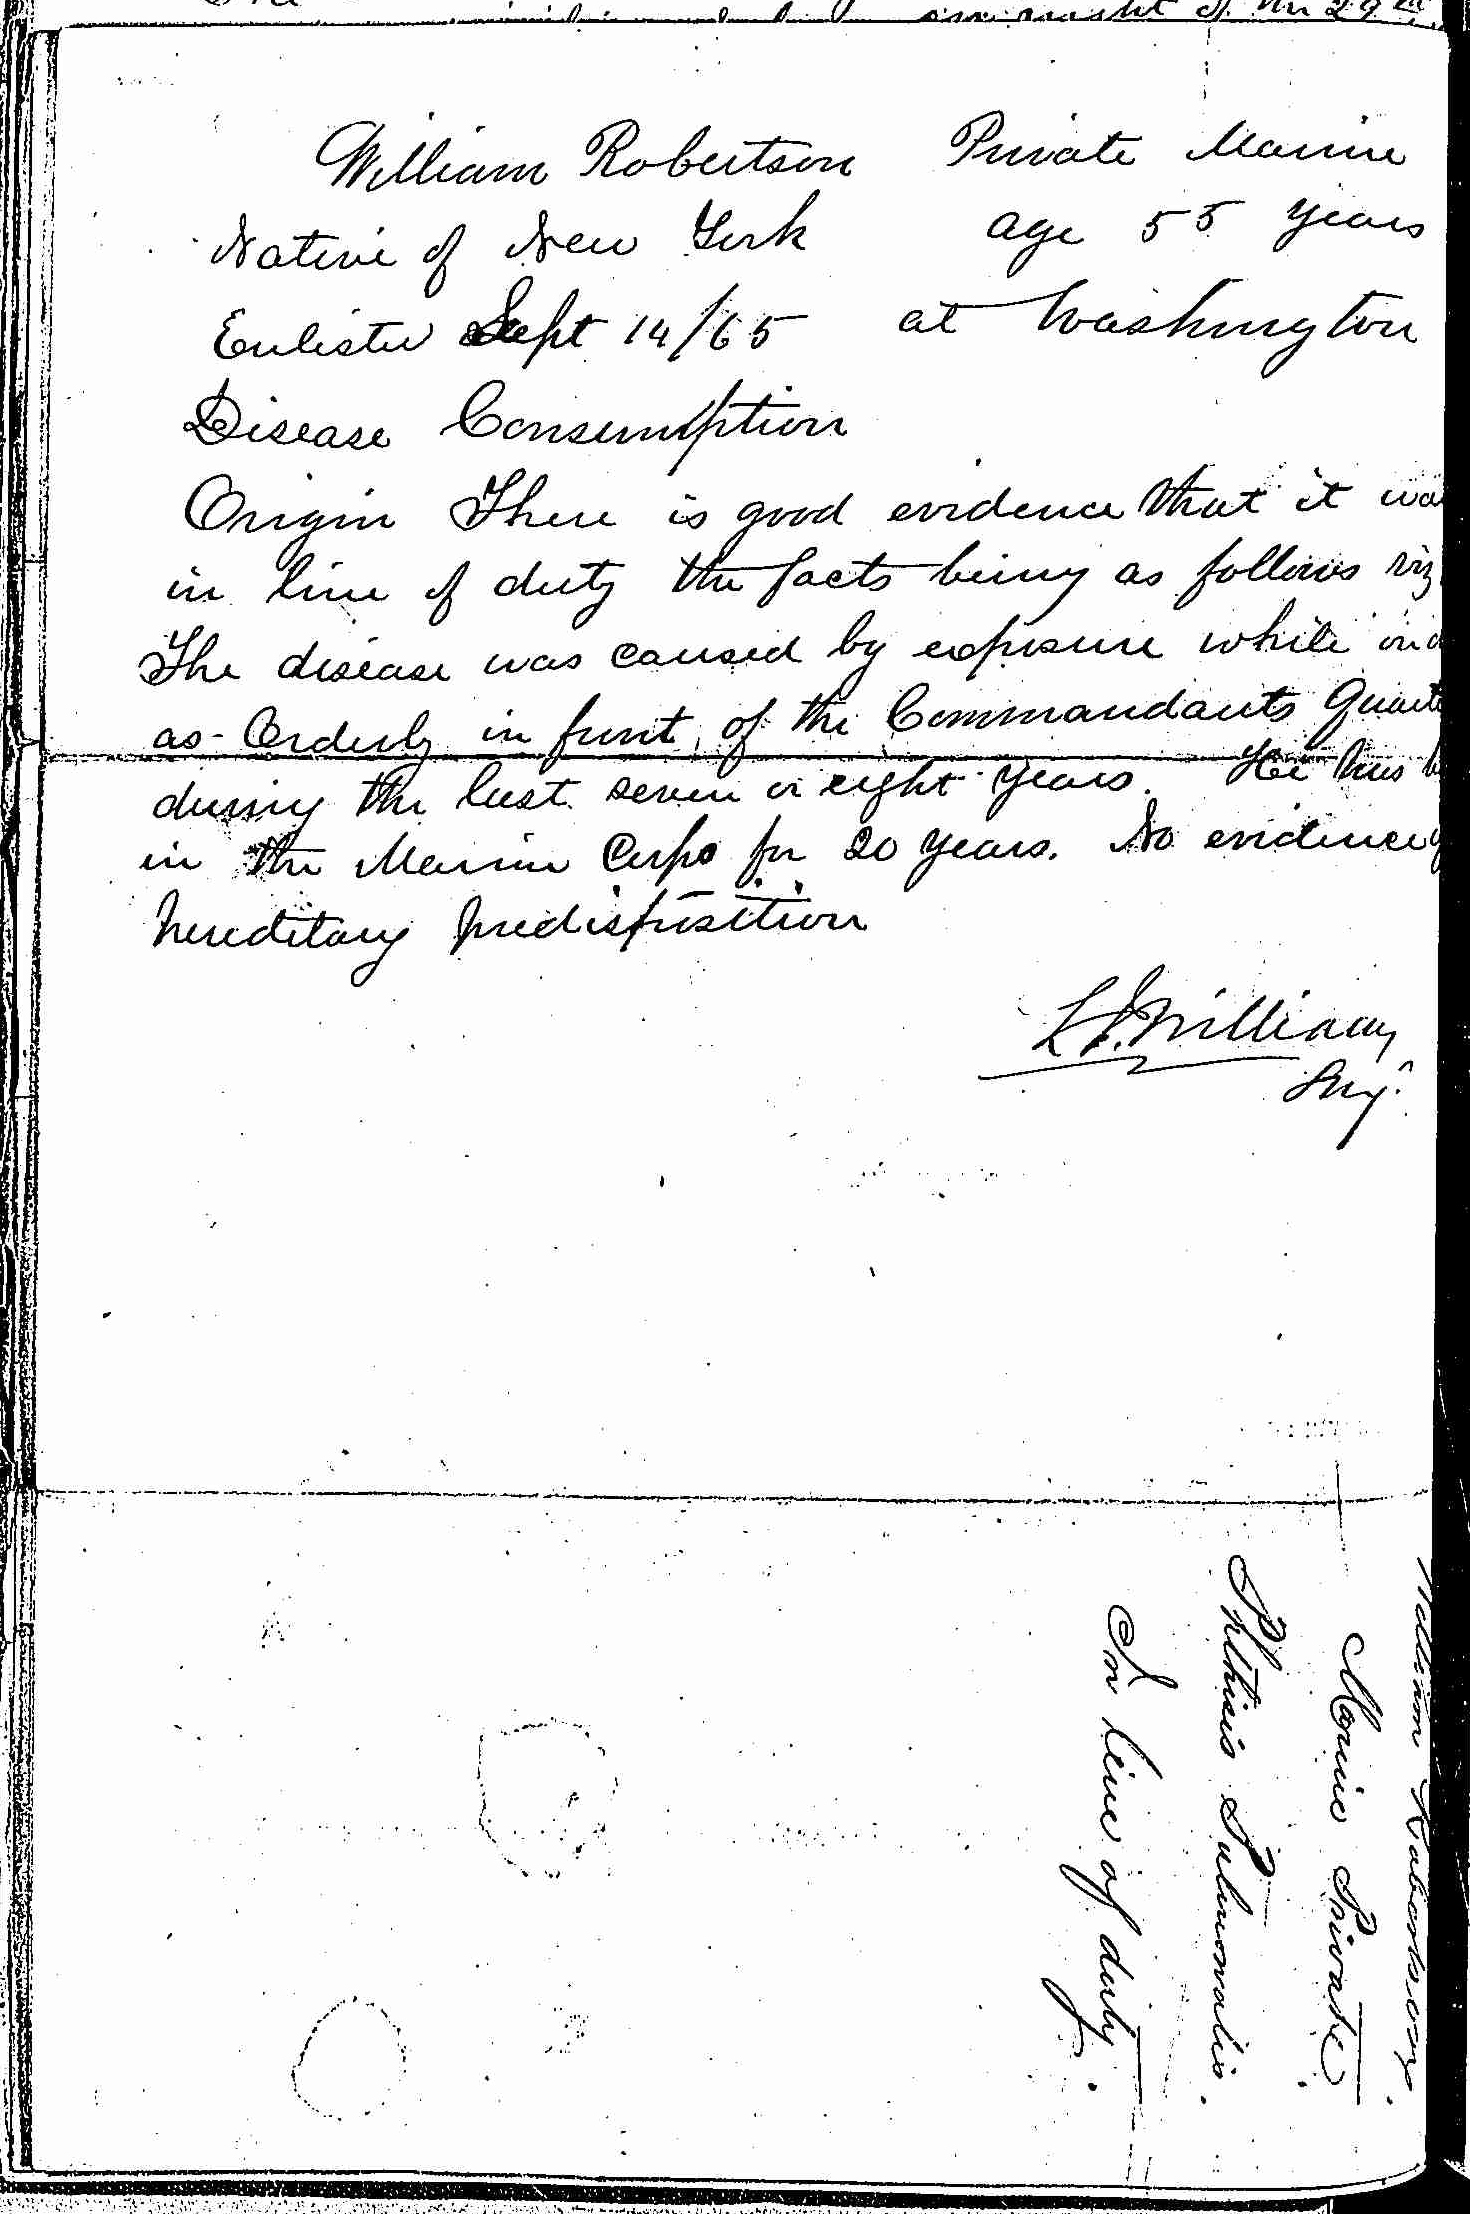 our night of the 29th
William Robertson Private Marine
Native of New York age 55 years
Enlisted Sept 14/65 at Washington
Disease Consumption
Origin There is good evidence that it wa
in line of duty the facts being as follows viz
The disease was caused by exposure while on
as Orderly in front of the Commandants Quarte
during the last seven or eight years. He has b
in the Marine Corps for 20 years. No evidence
hereditary predisposition
L J. Williams
Surg.
William Robertson.
Marine Private.
Phthisis Pulmonalis.
In line of duty.